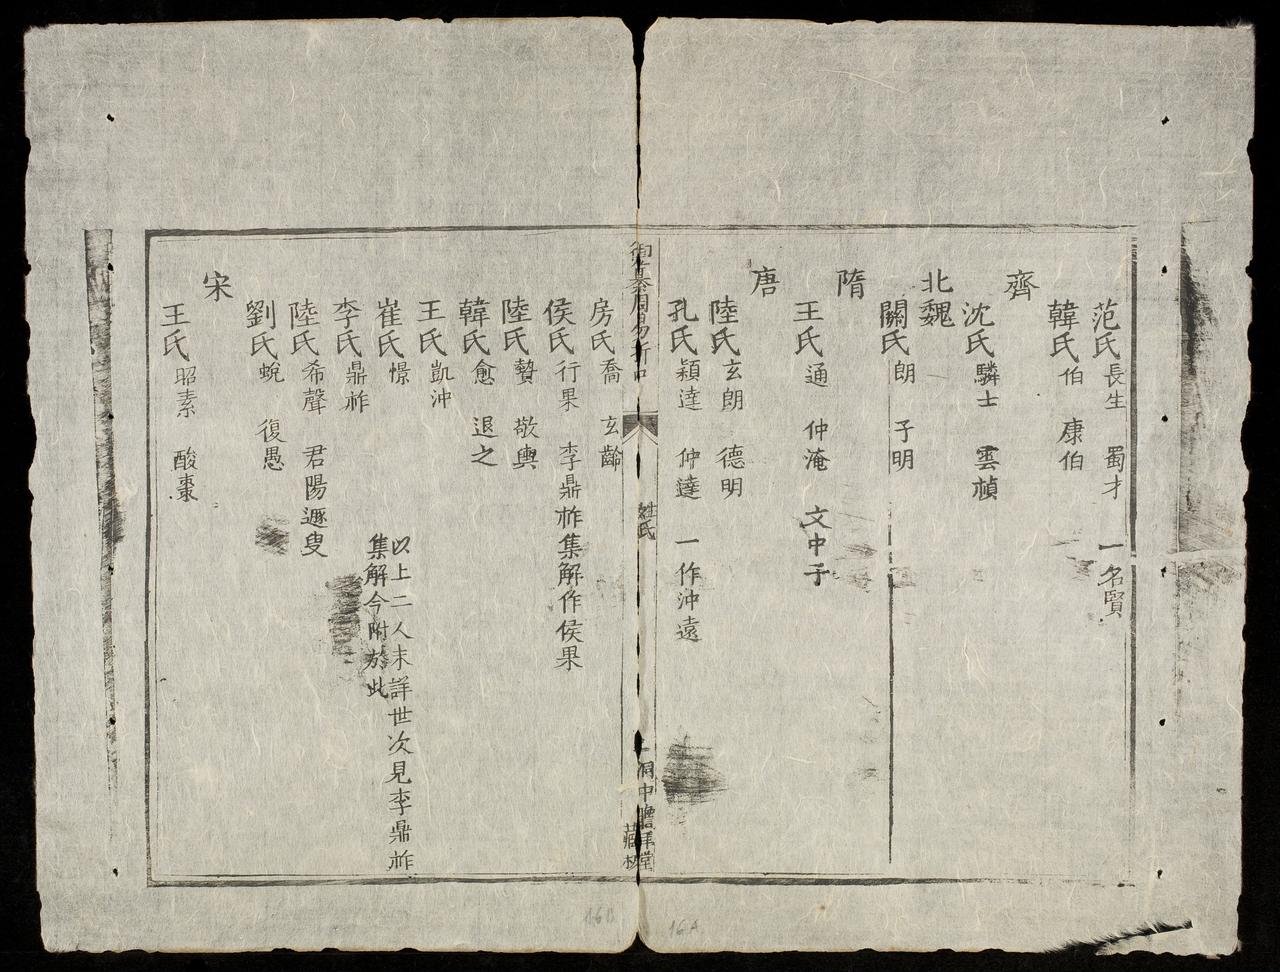 范氏長生 蜀才 一名賢
韓氏伯 康伯
齊
沈氏驎士 雲禎
北魏
關氏朗 子明
隋
王氏通 仲淹 文中子
唐
陸氏玄朗 德明
孔氏穎達 仲達 一作沖遠
御纂周易折中
姓氏
洞中瞻拜堂
藏板
房氏喬 玄齡
侯氏行果 李鼎祚集解作侯果
陸氏贄 敬輿
韓氏愈 退之
王氏凱沖
崔氏憬
以上二人未詳世次見李鼎祚
集解今附於此
李氏鼎祚
陸氏希聲 君陽遯叟
劉氏蛻 復愚
宋
王氏昭素 酸棗
16B
16A